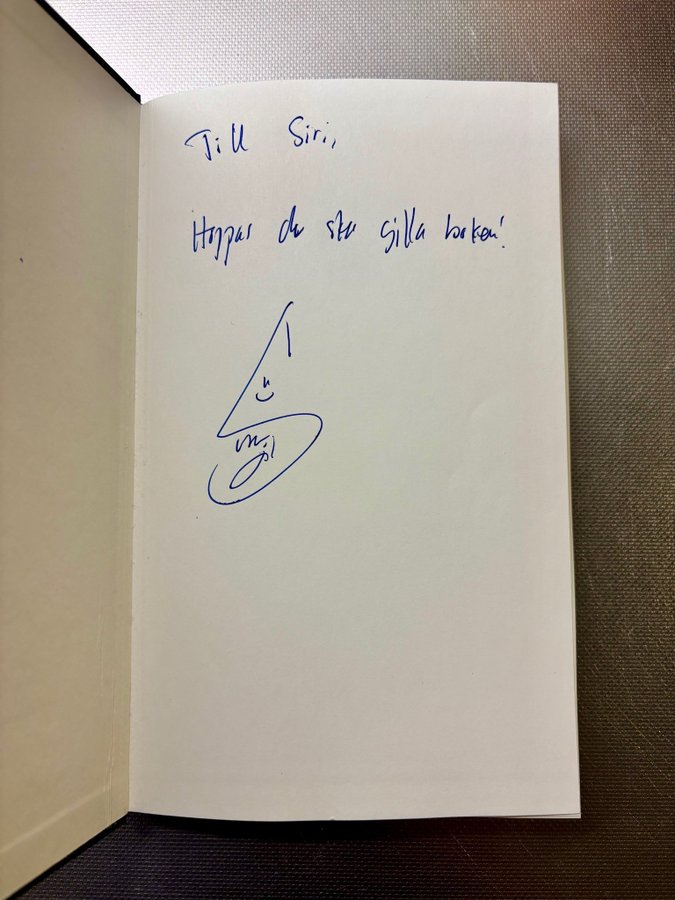 Till Siri,
Hoppas du ska gilla boken!